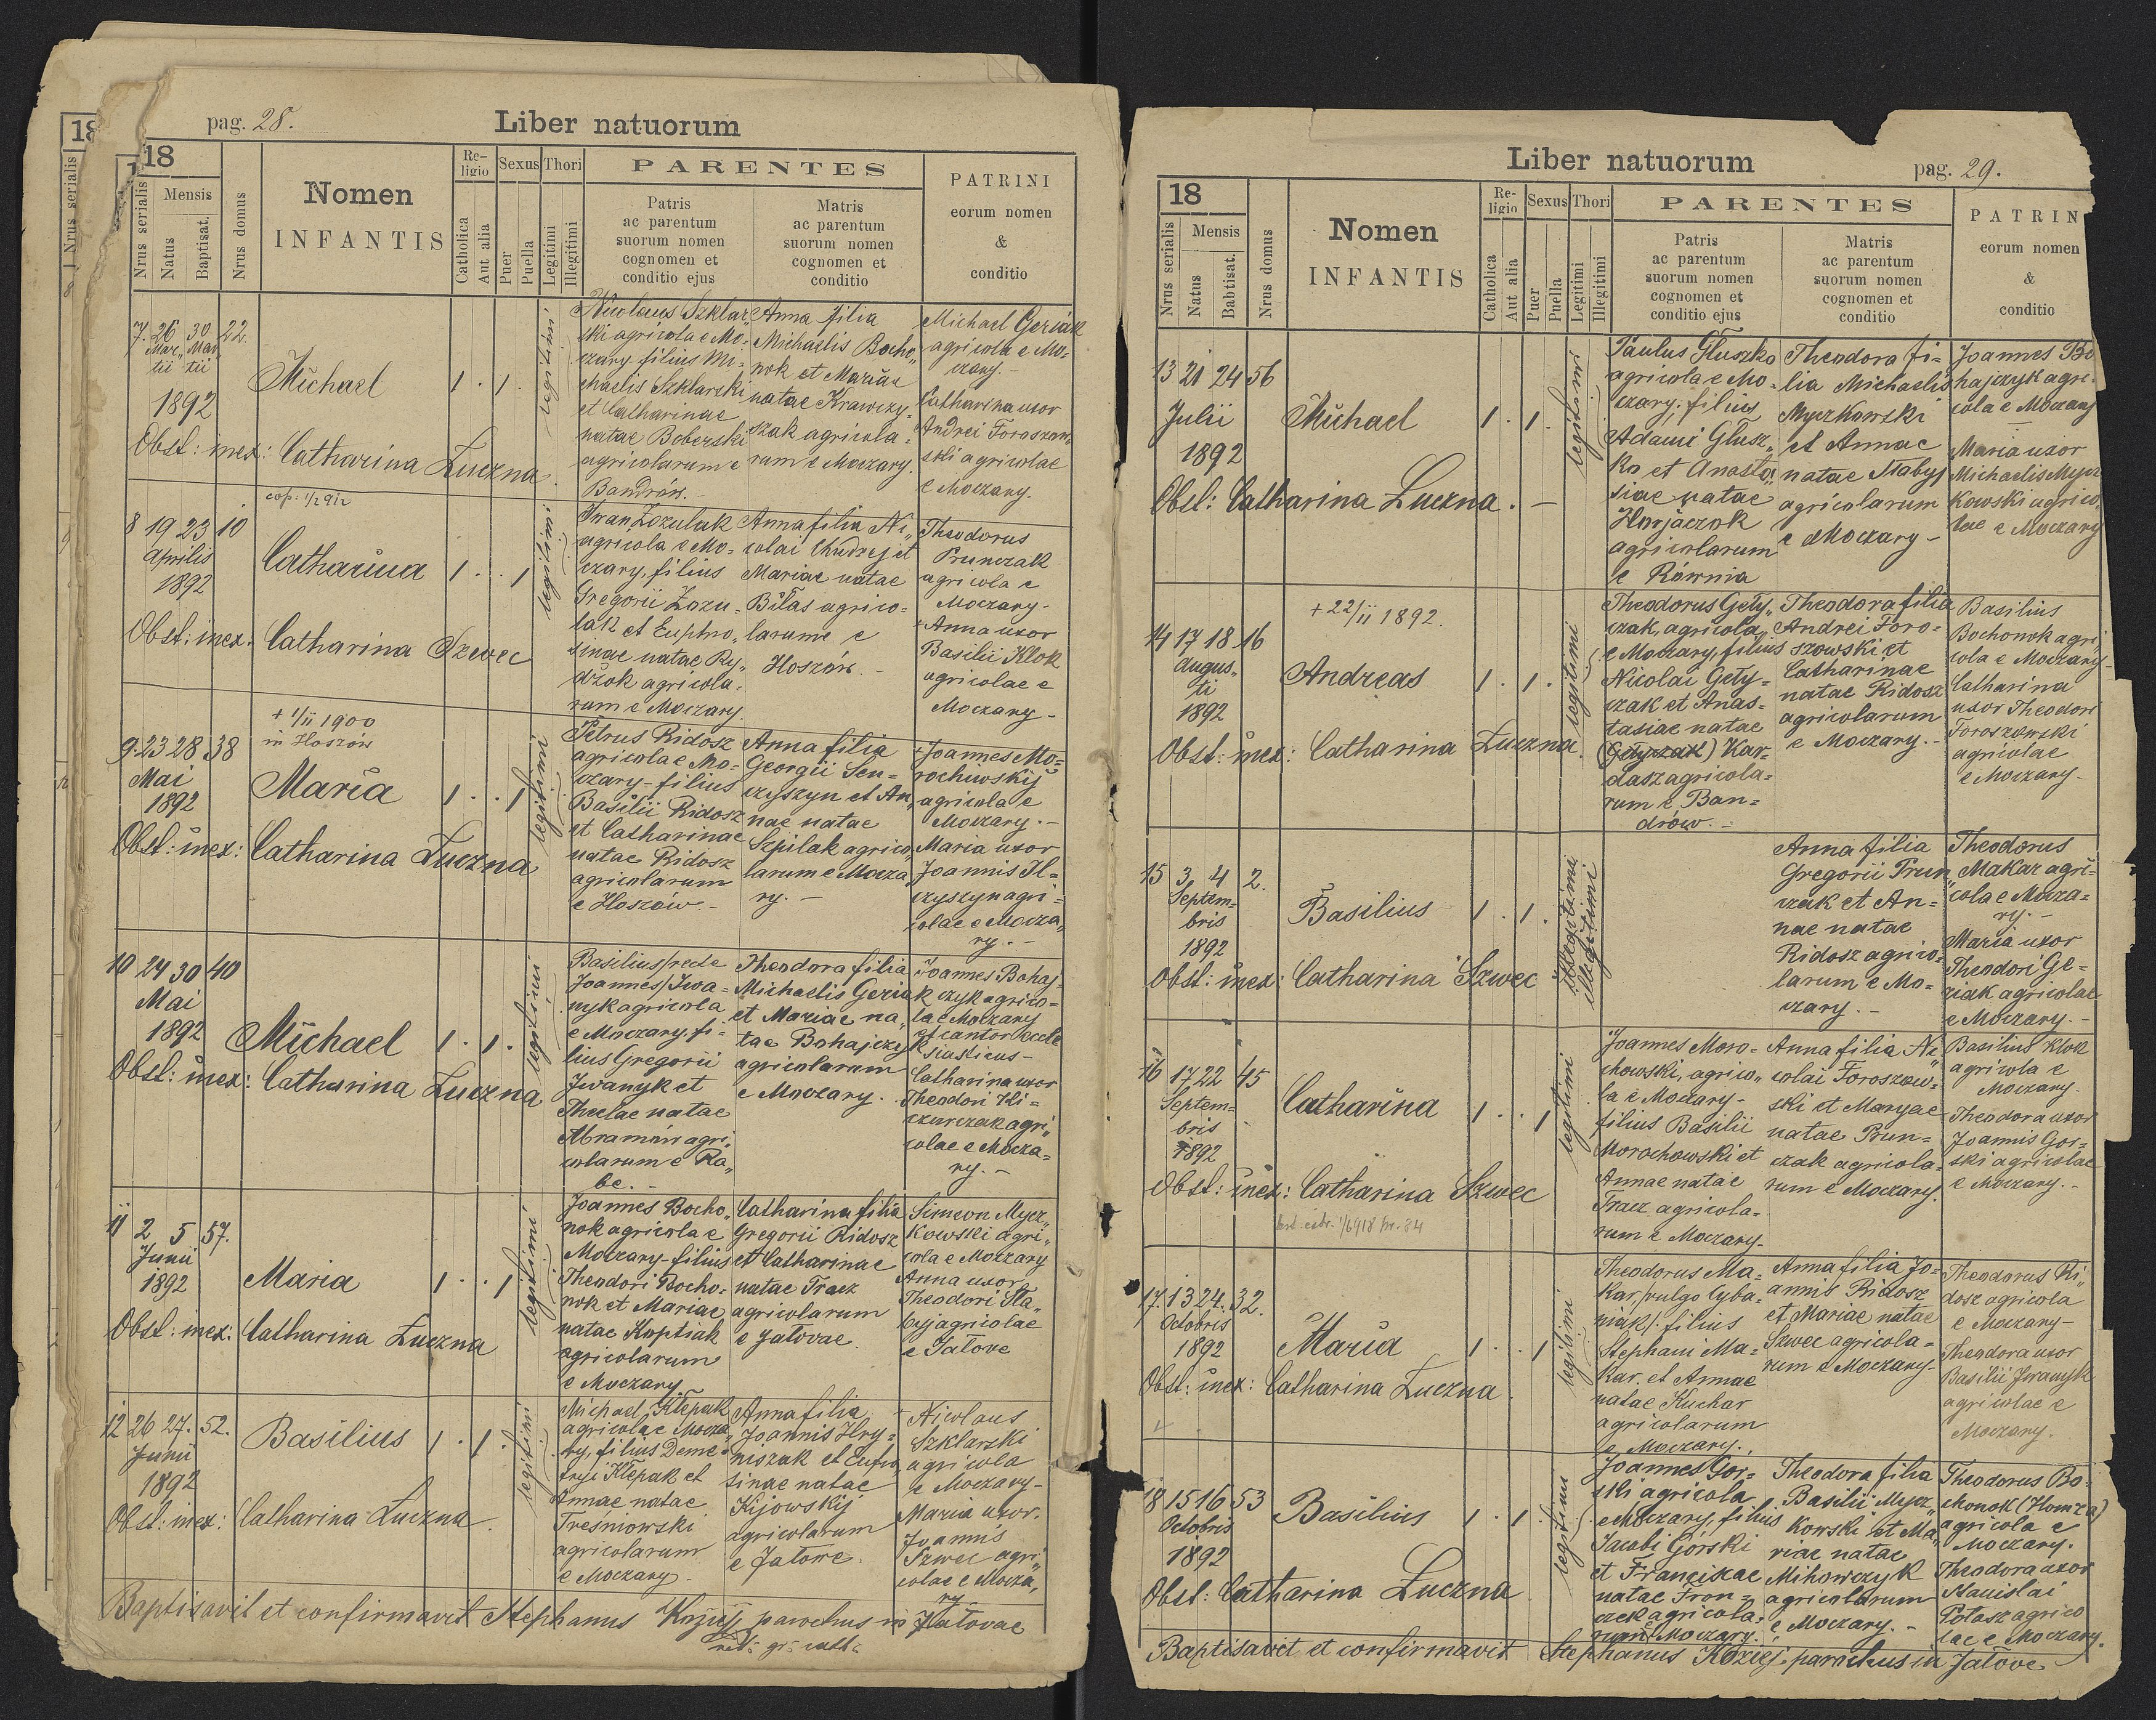 pag. 28.
Liber natuorum
18
Nrus serialis
18
Nrus serialis
Mensis
Natus
Baptisat.
Nrus domus
Nomen
INFANTIS
Re-
ligio
Catholica
Aut alia
Sexus
Puer
Puella
Thori
Legitimi
Illegitimi
PARENTES
Patris
ac parentum
suorum nomen
cognomen et
conditio ejus
Matris
ac parentum
suorum nomen
cognomen et
conditio
PATRINI
eorum nomen
&
conditio
7. 26 30 22.
Mar„ Mar„
tii tii
1892
Michael
1 . 1 .
legitimi
Obst: inex: Catharina Łuczna.
Nicolaus Szklar„
ski agricola e Mo=
czary filius Mi=
chaelis Szklarski
et Catharinae
natae Boberski
agricolarum e
Bandrów.-
Anna filia
Michaelis Bocho„
nok et Mariae
natae Krawczy„
szak agricola=
rum e Moczary.
Michael Geriak
agricola e Mo=
czary.-
Catharina uxor
Andrei Foroszow„
ski agricolae
e Moczary.
cop: 1/2 912
8 19 23 10
Aprilis
1892
Catharina
1 . . 1
legitimi
Obst: inex: Catharina Szewec
Iwan Zozulak
agricola e Mo=
czary, filius
Gregorii Zozu=
lak et Euphro„
sinae natae Ry„
dżok agricola=
rum e Moczary.
Anna filia Ni„
colai Chudzej et
Mariae natae
Biłas agrico=
larum e
Hoszów.
Theodorus
Prunczak
agricola e
Moczary-
Anna uxor
Basilii Klok
agricolae e
Moczary-
+ 1/II 1900
in Hoszów
9. 23 28. 38
Mai
1892
Maria
1 . . 1
legitimi
Obst: inex: Catharina Łuczna
Petrus Ridosz
agricola e Mo=
czary-filius
Basilii Ridosz
et Catharinae
natae Ridosz
agricolarum
e Hoszow.-
Anna filia
Georgii Sen=
czyszyn et An„
nae natae
Szpilak agrico„
larum e Mocza„
ry.-
Joannes Mo=
rochwskij
agricola e
Moczary.-
Maria uxor
Joannis Il=
czyszyn agri=
colae e Mocza„
ry.-
10 24 30 40
Mai
1892
Michael
1 . 1 .
legitimi
Obst: inex: Catharina Łuczna
Basilius/recte
Joannes/Iwa=
nyk agricola
e Moczary, fi=
lius Gregorii
Iwanyk et
Theclae natae
Abramów agri„
colarum e Ra„
be.-
Theodora filia
Michaelis Geriak
et Mariae na„
tae Bohajczyk
agricolarum
e Moczary.
Joannes Bohaj-
czyk agrico=
la e Moczary
et cantor eccle
siasticus-
Catharina uxor
Theodori Ki=
czurczak agri„
colae e Mocza=
ry.-
11 2 5 57.
Junii
1892
Maria
1 . . 1
legitimi
Obst: inex: Catharina Łuczna
Joannes Bocho„
nok agricola e
Moczary-filius
Theodori Bocho=
nok et Mariae
natae Koptiak
agricolarum
e Moczary
Catharina filia
Gregorii Ridosz
et Catharinae
natae Tracz
agricolarum
e Jałovae.
Simeon Mycz„
kowski agri„
cola e Moczary
Anna uxor
Theodori Sta„
byj agricolae
e Jałove
12 26 27. 52.
Junii
1892
Basilius
1 . 1 .
legitimi
Obst: inex: Catharina Łuczna.
Michael Klepak
agricola e Mocza„
ry, filius Deme=
trii Klepak et
Annae natae
Treśniowski
agricolarum
e Moczary-
Anna filia
Joannis Hry=
niszak et Eufro„
sinae natae
Kijowskij
agricolarum
e Jałowe.
Nicolaus
Szklarski
agricola
e Moczary-
Maria uxor.
Joannis
Szwec agri„
colae e Mocza„
ry.-
Baptisavit et confirmavit Stephanus Kozij parochus in Jałovae
rit: gr: cath:
Liber natuorum
pag. 29.
18
Nrus serialis
Mensis
Natus
Babtisat.
Nrus domus
Nomen
INFANTIS
Re-
ligio
Catholica
Aut alia
Sexus
Puer
Puella
Thori
Legitimi
Illegitimi
PARENTES
Patris
ac parentum
suorum nomen
cognomen et
conditio ejus
Matris
ac parentum
suorum nomen
cognomen et
conditio
PATRIN
eorum nomen
&
conditio
13 21 24 56
Julii
1892
Michael
1 . 1 .
legitimi
Obst: Catharina Łuczna.-
Paulus Głuszko
agricola e Mo=
czary; filius
Adami Głusz„
ko et Anasta„
siae natae
Horjaczok
agricolarum
e Równia
Theodora fi=
lia Michaelis
Myczkowski
et Annae
natae Stabyj
agricolarum
e Moczary-
Joannes Bo
hajczyk agri=
cola e Moczary
Maria uxor
Michaelis Mycz
kowski agrico„
lae e Moczary
+ 22/II 1892.
14 17 18 16
Augus„
ti
1892
Andreas
1 . 1 .
legitimi
Obst: inex: Catharina Łuczna.
Theodorus Gety„
czak, agricola
e Moczary, filius
Nicolai Gety=
czak et Anas=
tasiae natae
(Getyczak) Kar„
dasz agricola=
rum e Ban=
drów.-
Theodora filia
Andrei Foro=
szowski et
Catharinae
natae Ridosz
agricolarum
e Moczary.-
Basilius
Bochonok agri„
cola e Moczary-
Catharina
uxor Theodori
Foroszowski
agricolae
e Moczary-
15 3 4 2.
Septem=
bris
1892
Basilius
1 . 1 .
illegitimi
illegitimi
Obst: inex: Catharina Szwec
Anna filia
Gregorii Prun„
czak et An=
nae natae
Ridosz agrico=
larum e Mo=
czary.-
Theodorus
Makar agri=
cola e Mocza=
ry.-
Maria uxor
Theodori Ge=
riak agricolae
e Moczary.-
16 17 22 45
Septem=
bris
1892
Catharina
1 . . 1
legitimi
Obst: inex: Catharina Szwec
Joannes Moro=
chowski, agrico„
la e Moczary-
filius Basilii
Morochowski et
Annae natae
Tracz agricola=
rum e Moczary-
Anna filia Ni„
colai Foroszow=
ski et Maryae
natae Prun=
czak agricola=
rum e Moczary.
Basilius Klok
agricola e
Moczary.
Theodora uxor
Joannis Gor=
ski agricolae
e Moczary.-
17. 13 24. 32.
Octobris
1892
Maria
1 . . 1
legitimi
Obst: inex: Catharina Łuczna.
Theodorus Ma=
kar/vulgo Cyba=
niak/: filius
Stephani Ma=
kar. et Annae
natae Kuchar
agricolarum
e Moczary.
Anna filia Jo=
annis Ridosz
et Mariae natae
Szwec agricola=
rum e Moczary-
Theodorus Ri„
dosz agricola
e Moczary-
Theodora uxor
Basilii Iwanyk
agricolae e
Moczary.
18 15 16 53
Octobris
1892
Basilius
1 . 1 .
legitimi
Obst: Catharina Łuczna
Joannes Gor=
ski agricola
e Moczary, filius
Jacobi Górski
et Franciscae
natae Fron=
czek agricola=
rum e Moczary.
Theodora filia
Basilii Mycz„
kowski et Ma„
riae natae
Mikowczyk
agricolarum
e Moczary.-
Theodorus Bo=
chonok (Homza)
agricola e
Moczary.
Theodora uxor
Stanislai
Potasz agrico
lae e Moczary.
Baptisavit et confirmavit Stephanus Kozij parochus in Jałove